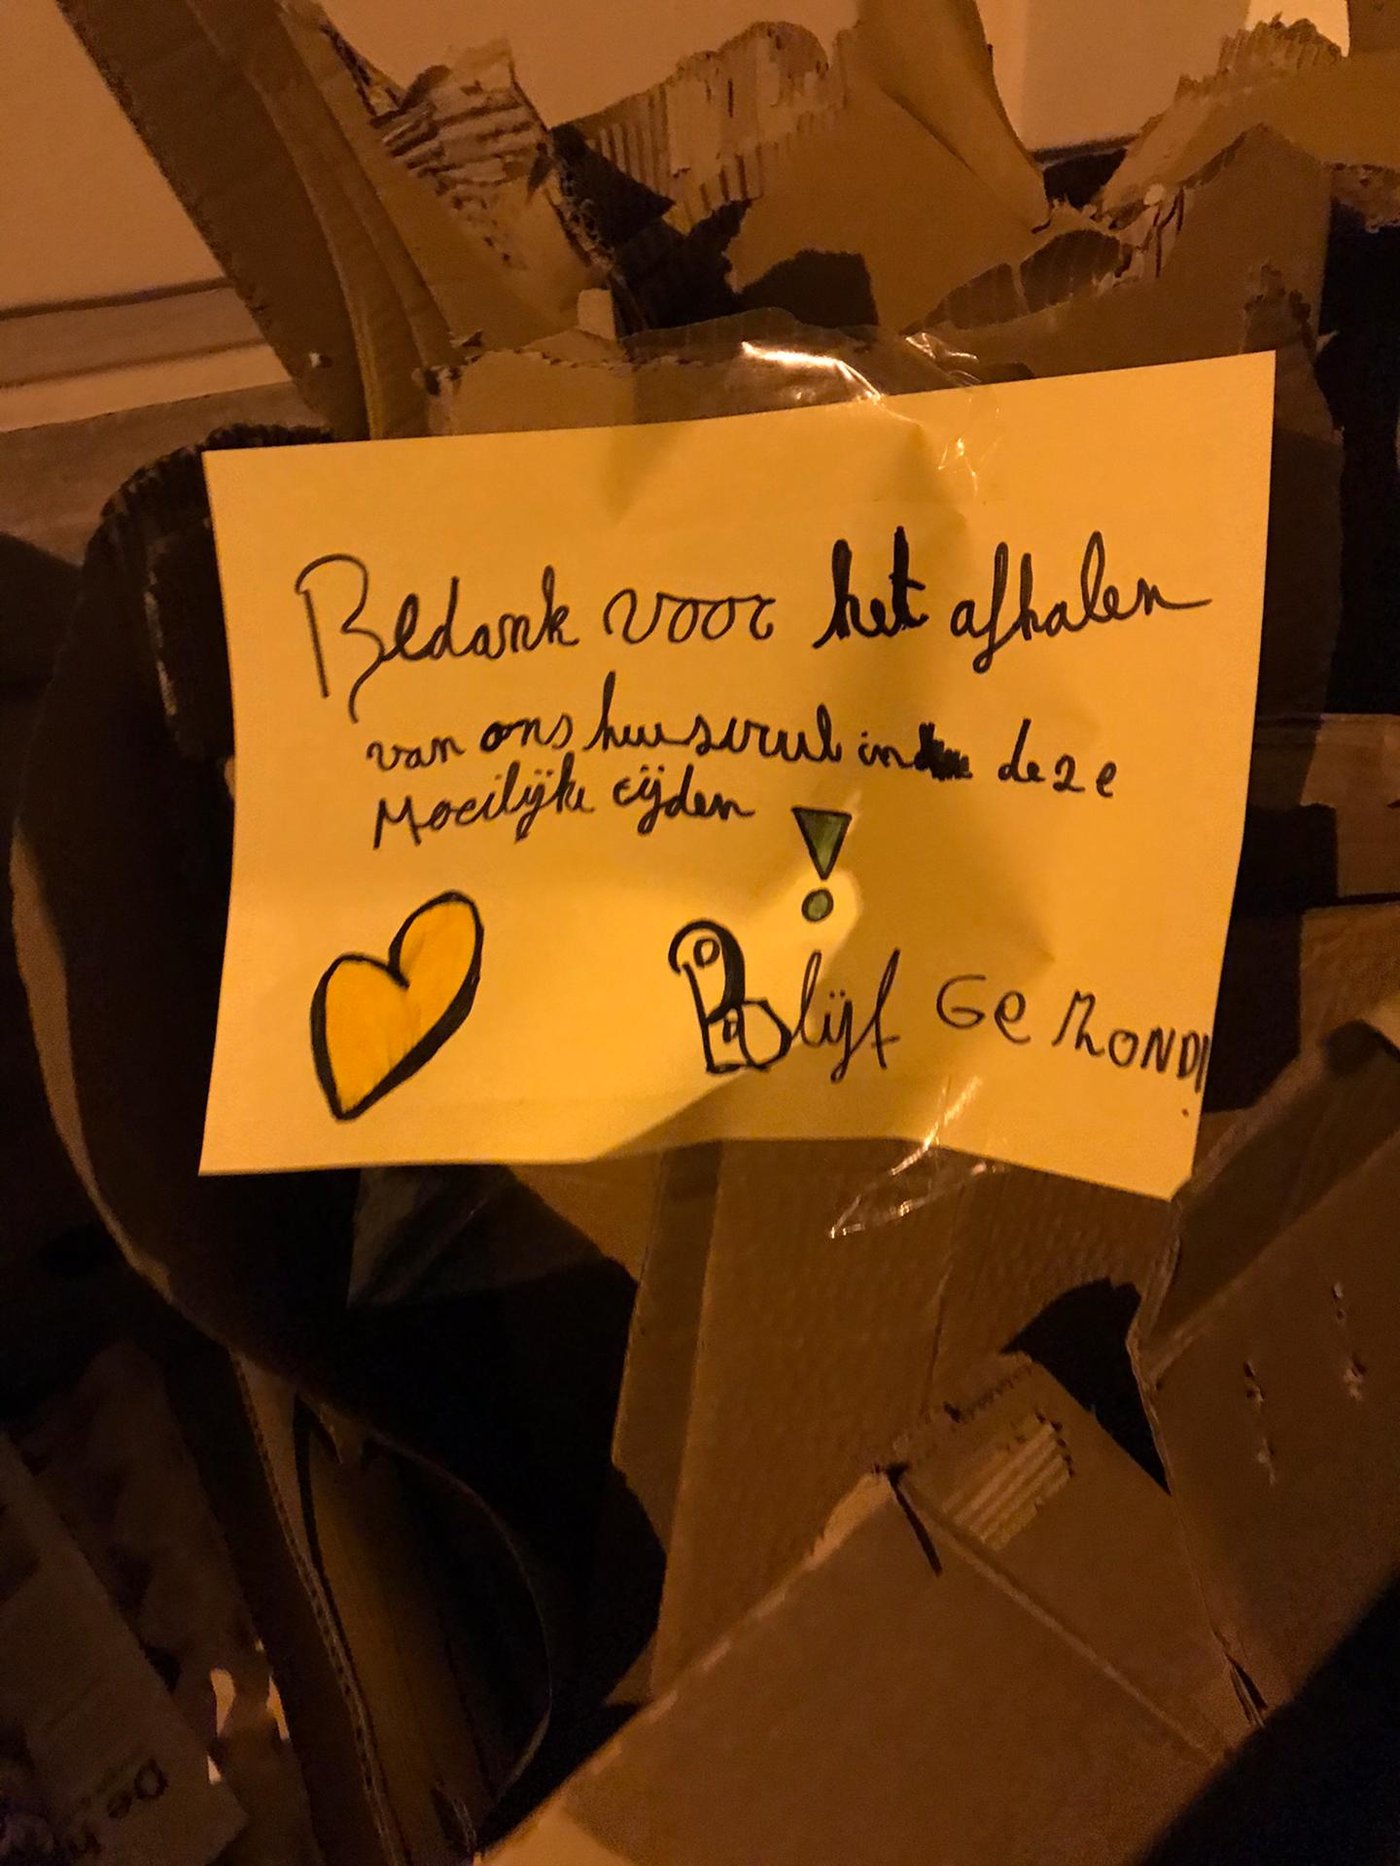 Bedank voor het afhalen
van ons huisvuil in deze
Moeilijke tijden !
Blijf Gezond!
De